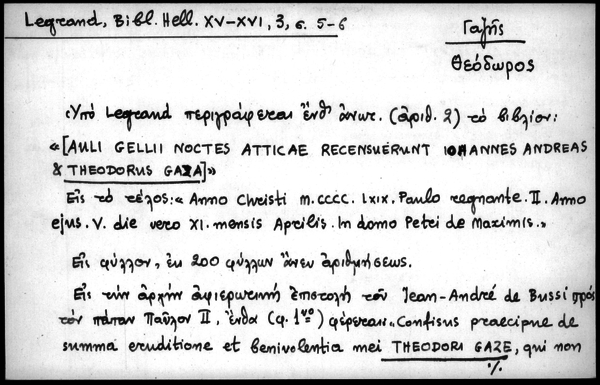 Legrand, Bibl. Hell. XV-XVI, 3, σ. 5-6
Γαζῆς
Θεόδωρος
Ὑπό Legrand περιγράφεται ἔνθ' ἄνωτ. (ἀριθ. 2) τό βιβλίον:
«[AULI GELLII NOCTES ATTICAE RECENSUERUNT IOHANNES ANDREAS
& THEODORUS GAZA]»
Εἰς τό τέλος: «Anno Christi M.CCCC. LXIX. Paulo regnante. II. Anno
ejus. V. die vero XI. mensis Aprilis. In domo Petri de Maximis.»
Εἰς φύλλον, ἐκ 200 φύλλων ἄνευ ἀριθμήσεως.
Εἰς τήν ἀρχήν ἀφιερωτική ἐπιστολή τοῦ Jean-André de Bussi πρός
τόν πάπαν Παῦλον II, ἔνθα (φ. 1νο) φέρεται: «Confisus praecipue de
summa eruditione et benivolentia mei THEODORI GAZE, qui non
./.